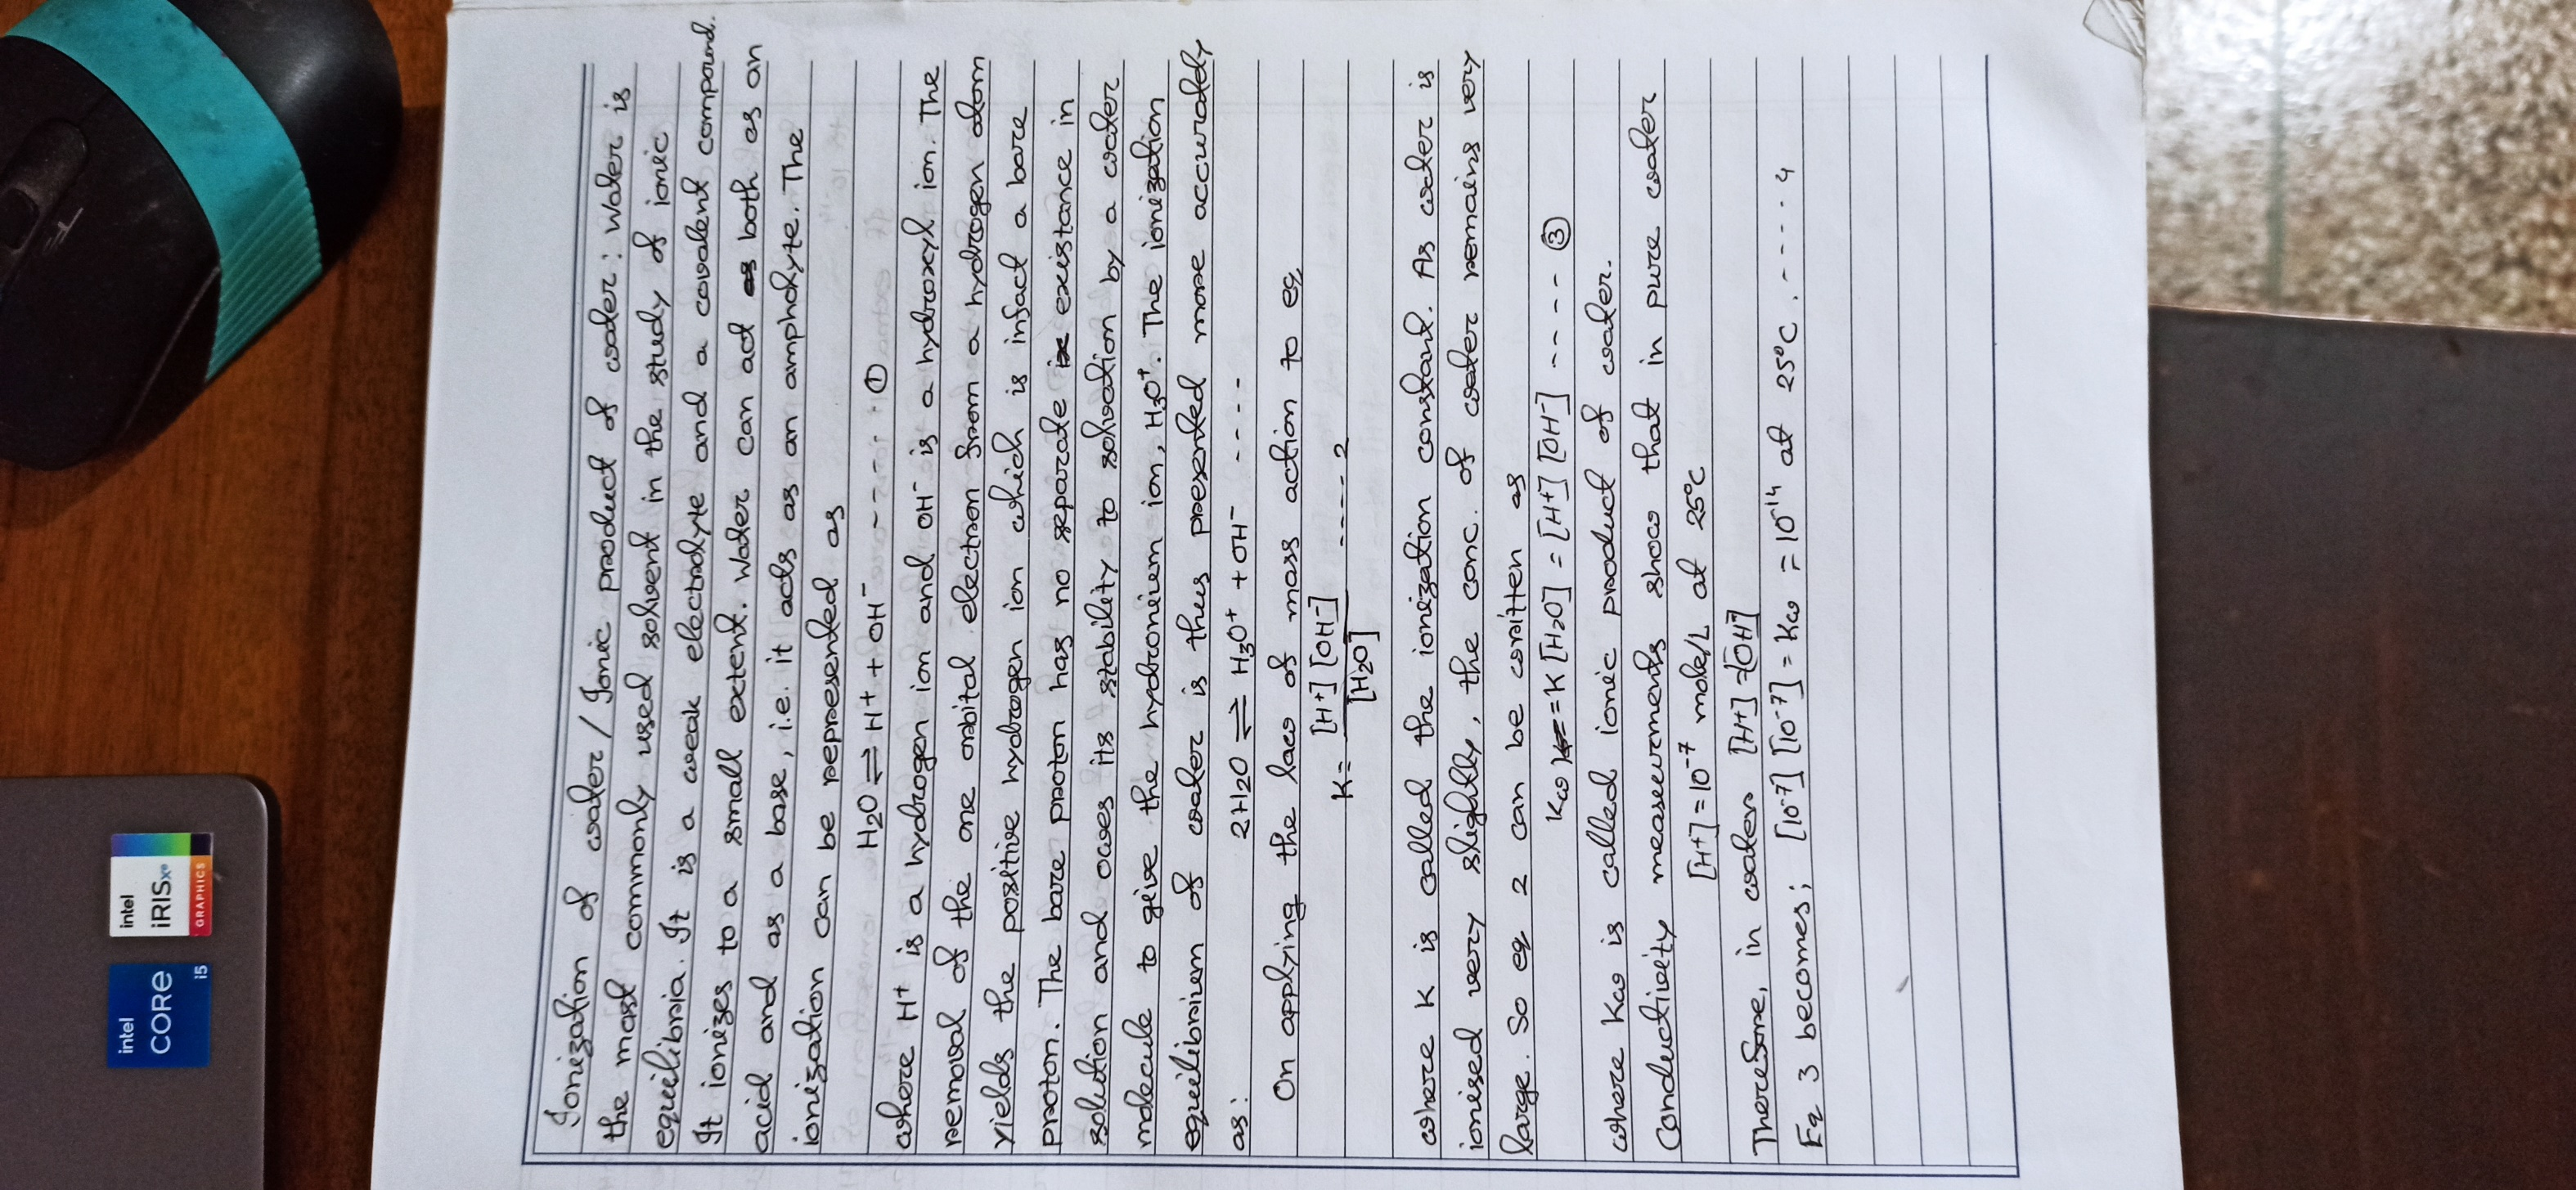 Ionization of water / Ionic product of water : Water is
the most commonly used solvent in the study of ionic
equilibria. It is a weak electrolyte and a covalent compound.
It ionizes to a small extent. Water can act as both as an
acid and as a base, i.e. it acts as an ampholyte. The
ionization can be represented as
H2O ⇌ H+ + OH- - - - - . . ①
where H+ is a hydrogen ion and OH- is a hydroxyl ion. The
removal of the one orbital electron from a hydrogen atom
yields the positive hydrogen ion which is infact a bare
proton. The bare proton has no separate existance in
solution and owes its stability to solvation by a water
molecule to give the hydronium ion, H3O+. The ionization
equilibrium of water is thus presented more accurately
as:
2H2O ⇌ H3O+ + OH- - - - -
On applying the law of mass action to eq
K = [H+] [OH-] / [H2O] - - - - - 2
where K is called the ionization constant. As water is
ionised very slightly, the conc. of water remains very
large. So eq 2 can be written as
Kw = K [H2O] = [H+] [OH-] - - - - - ③
where Kw is called ionic product of water.
Conductivity measurements show that in pure water
[H+] = 10-7 mole/L at 25°C
Therefore, in water [H+] = [OH-]
Eq 3 becomes; [10-7] [10-7] = Kw = 10-14 at 25°C . - . . . . 4
intel
CORE
i5
intel
IRIS Xe
GRAPHICS